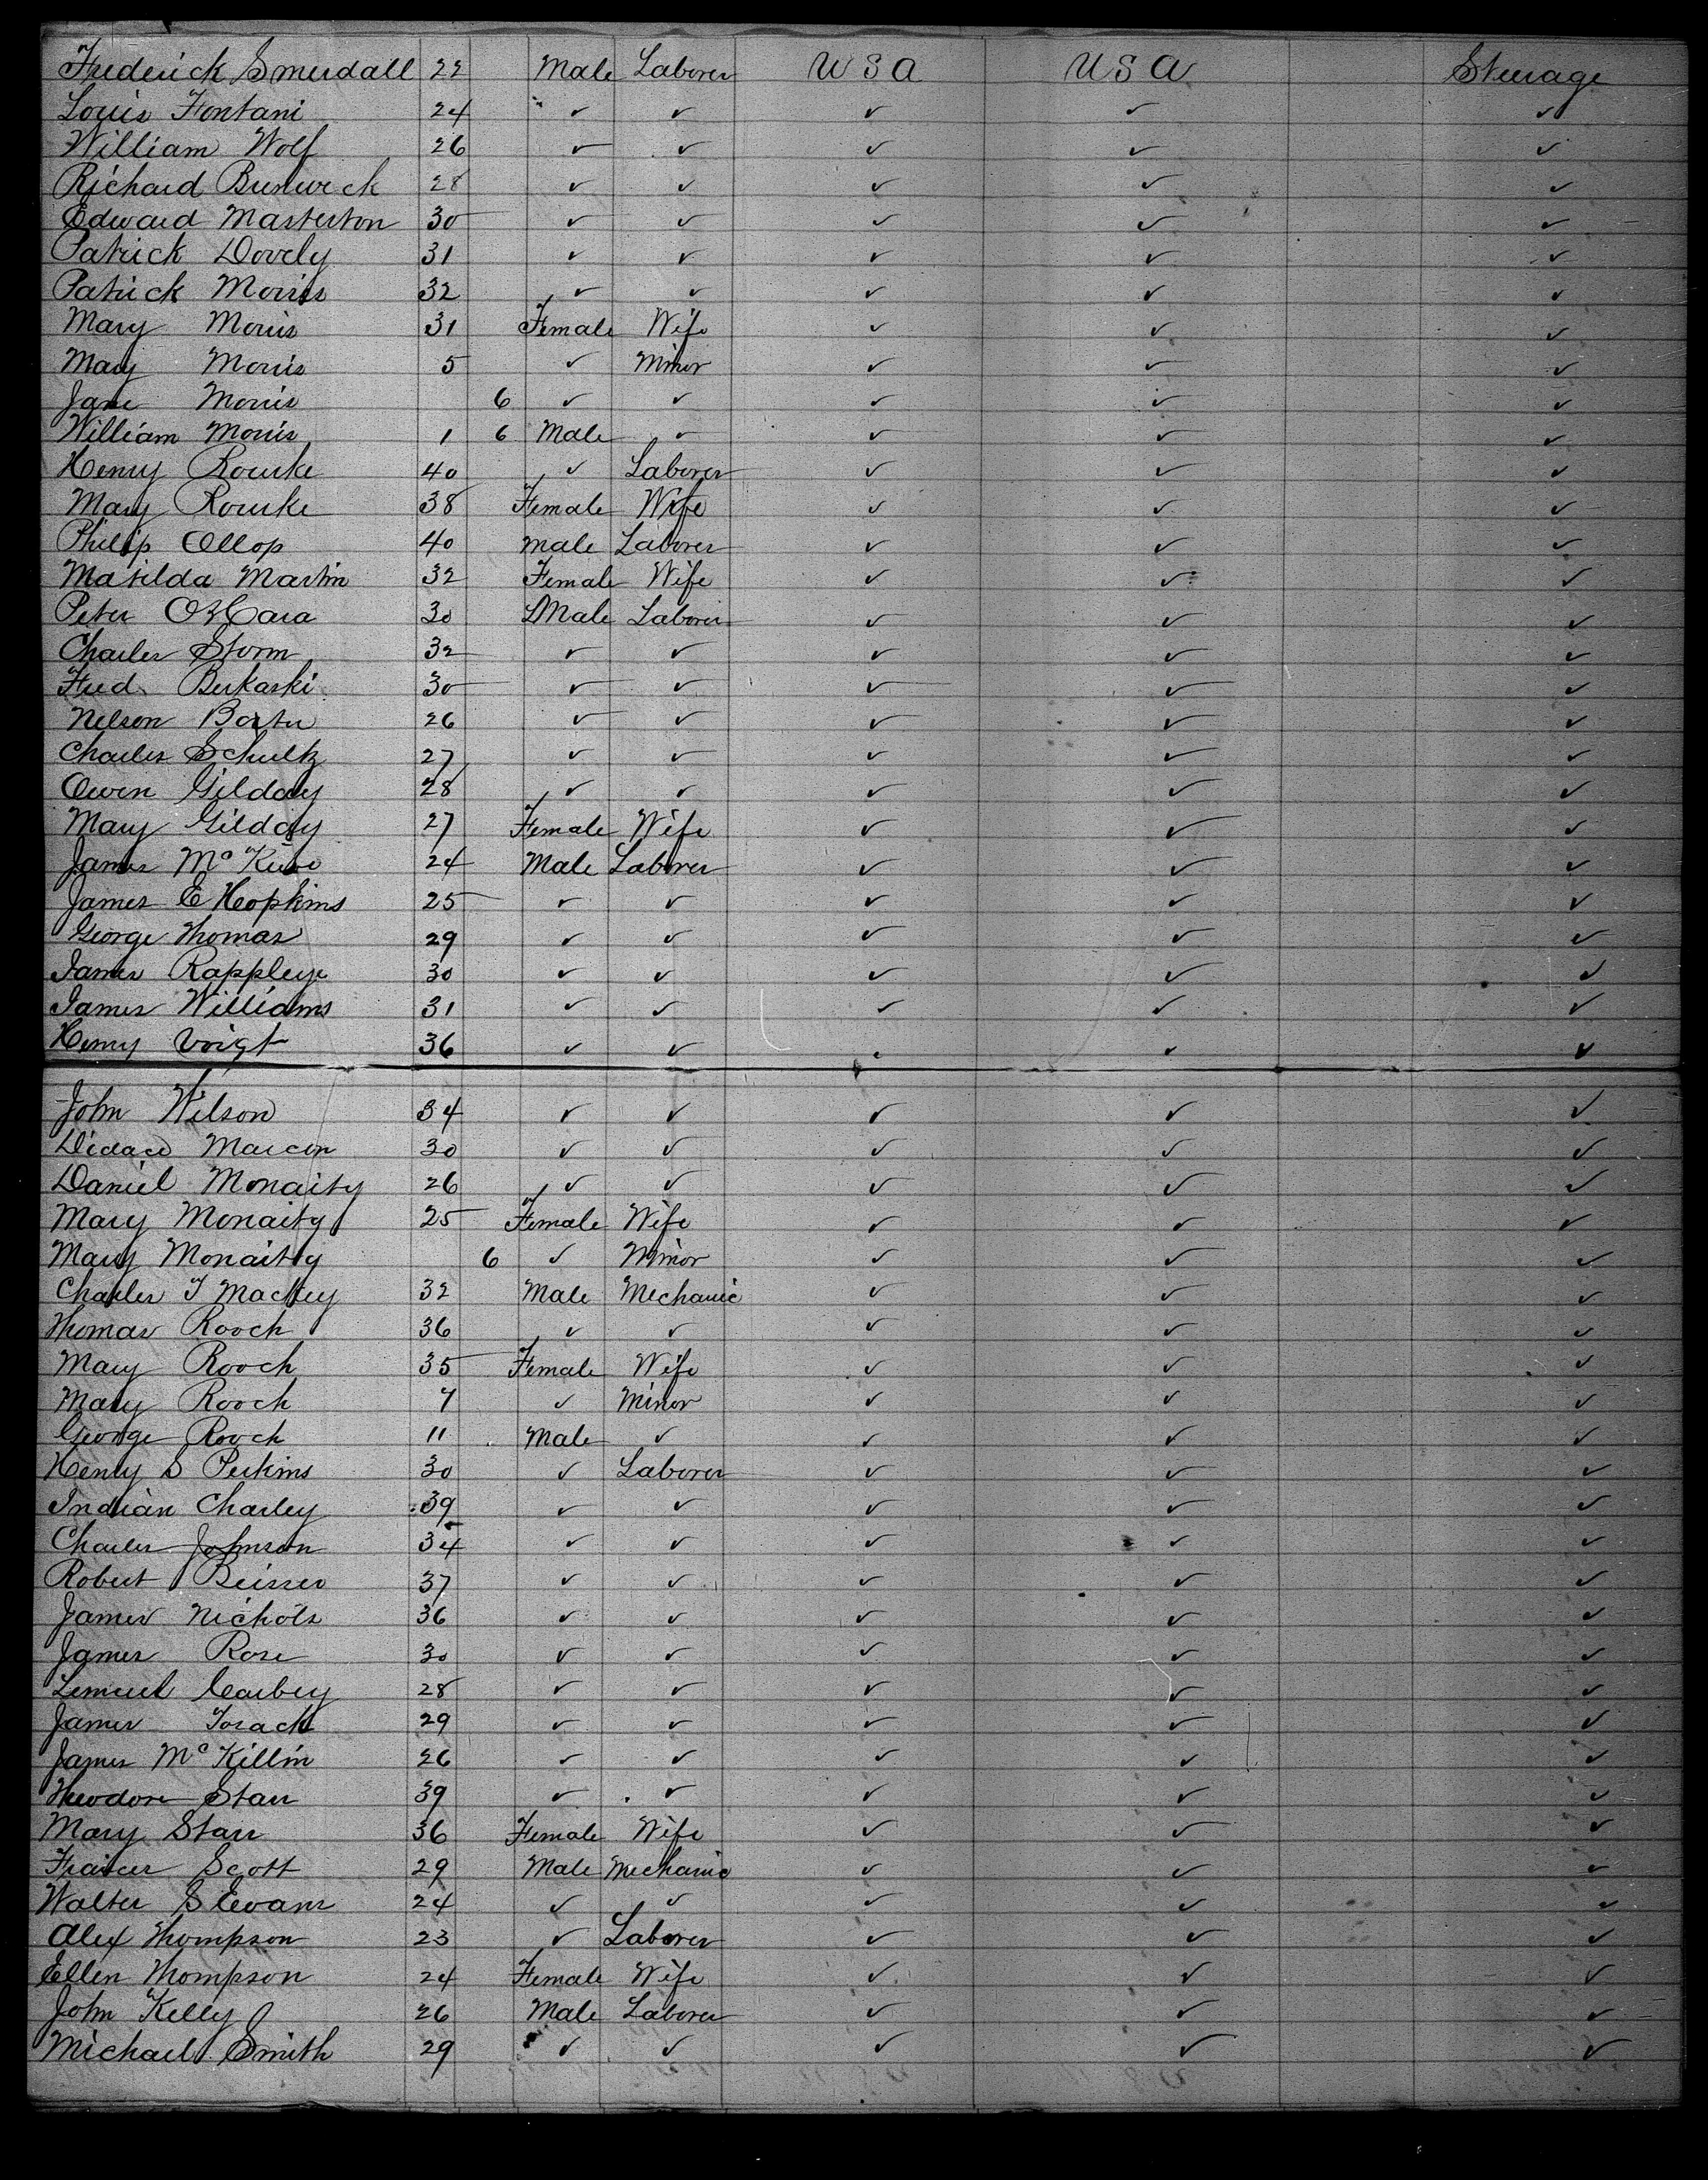 Frederick Smerdall 22 Male Laborer U S A U S A Steerage
Louis Fontani 24 ✓ ✓ ✓ ✓ ✓
William Wolf 26 ✓ ✓ ✓ ✓ ✓
Richard 28 ✓ ✓ ✓ ✓ ✓
Edward Masterton 30 ✓ ✓ ✓ ✓ ✓
Patrick Dovely 31 ✓ ✓ ✓ ✓ ✓
Patrick Morris 32 ✓ ✓ ✓ ✓ ✓
Mary Morris 31 Female Wife ✓ ✓ ✓
Mary Morris 5 ✓ Minor ✓ ✓ ✓
Jane Morris 6 ✓ ✓ ✓ ✓ ✓
William Morris 1 6 Male ✓ ✓ ✓ ✓
Henry Rourke 40 ✓ Laborer ✓ ✓ ✓
Mary Rourke 38 Female Wife ✓ ✓ ✓
Philip Ollop 40 Male Laborer ✓ ✓ ✓
Matilda Martin 32 Female Wife ✓ ✓ ✓
Peter O'Hara 30 Male Laborer ✓ ✓ ✓
Charles Storm 32 ✓ ✓ ✓ ✓ ✓
Fred Berkaski 30 ✓ ✓ ✓ ✓ ✓
Nelson 26 ✓ ✓ ✓ ✓ ✓
Charles Schultz 27 ✓ ✓ ✓ ✓ ✓
Owen Gilday 28 ✓ ✓ ✓ ✓ ✓
Mary Gilday 27 Female Wife ✓ ✓ ✓
James 24 Male Laborer ✓ ✓ ✓
James E Hopkins 25 ✓ ✓ ✓ ✓ ✓
George Thomas 29 ✓ ✓ ✓ ✓ ✓
James Rappleye 30 ✓ ✓ ✓ ✓ ✓
James Williams 31 ✓ ✓ ✓ ✓ ✓
Henry Voigt 36 ✓ ✓ ✓ ✓ ✓
John Wilson 34 ✓ ✓ ✓ ✓ ✓
Marcon 30 ✓ ✓ ✓ ✓ ✓
Daniel Monaity 26 ✓ ✓ ✓ ✓ ✓
Mary Monaity 25 Female Wife ✓ ✓ ✓
Mary Monaity 6 ✓ Minor ✓ ✓ ✓
Charles T Mackey 32 Male Mechanic ✓ ✓ ✓
Thomas Rooch 36 ✓ ✓ ✓ ✓ ✓
Mary Rooch 35 Female Wife ✓ ✓ ✓
Mary Rooch 7 ✓ Minor ✓ ✓ ✓
George Rooch 11 Male ✓ ✓ ✓ ✓
Henry S Perkins 30 ✓ Laborer ✓ ✓ ✓
Indian Charley 39 ✓ ✓ ✓ ✓ ✓
Charles Johnson 34 ✓ ✓ ✓ ✓ ✓
Robert 37 ✓ ✓ ✓ ✓ ✓
James Nichols 36 ✓ ✓ ✓ ✓ ✓
James Rose 30 ✓ ✓ ✓ ✓ ✓
Lemuel Carbey 28 ✓ ✓ ✓ ✓ ✓
James 29 ✓ ✓ ✓ ✓ ✓
James McKillin 26 ✓ ✓ ✓ ✓ ✓
Theodore Starr 39 ✓ ✓ ✓ ✓ ✓
Mary Starr 36 Female Wife ✓ ✓ ✓
Frances Scott 29 Male Mechanic ✓ ✓ ✓
Walter S Evans 24 ✓ ✓ ✓ ✓ ✓
Alex Thompson 23 ✓ Laborer ✓ ✓ ✓
Ellen Thompson 24 Female Wife ✓ ✓ ✓
John Kelly 26 Male Laborer ✓ ✓ ✓
Michael Smith 29 ✓ ✓ ✓ ✓ ✓